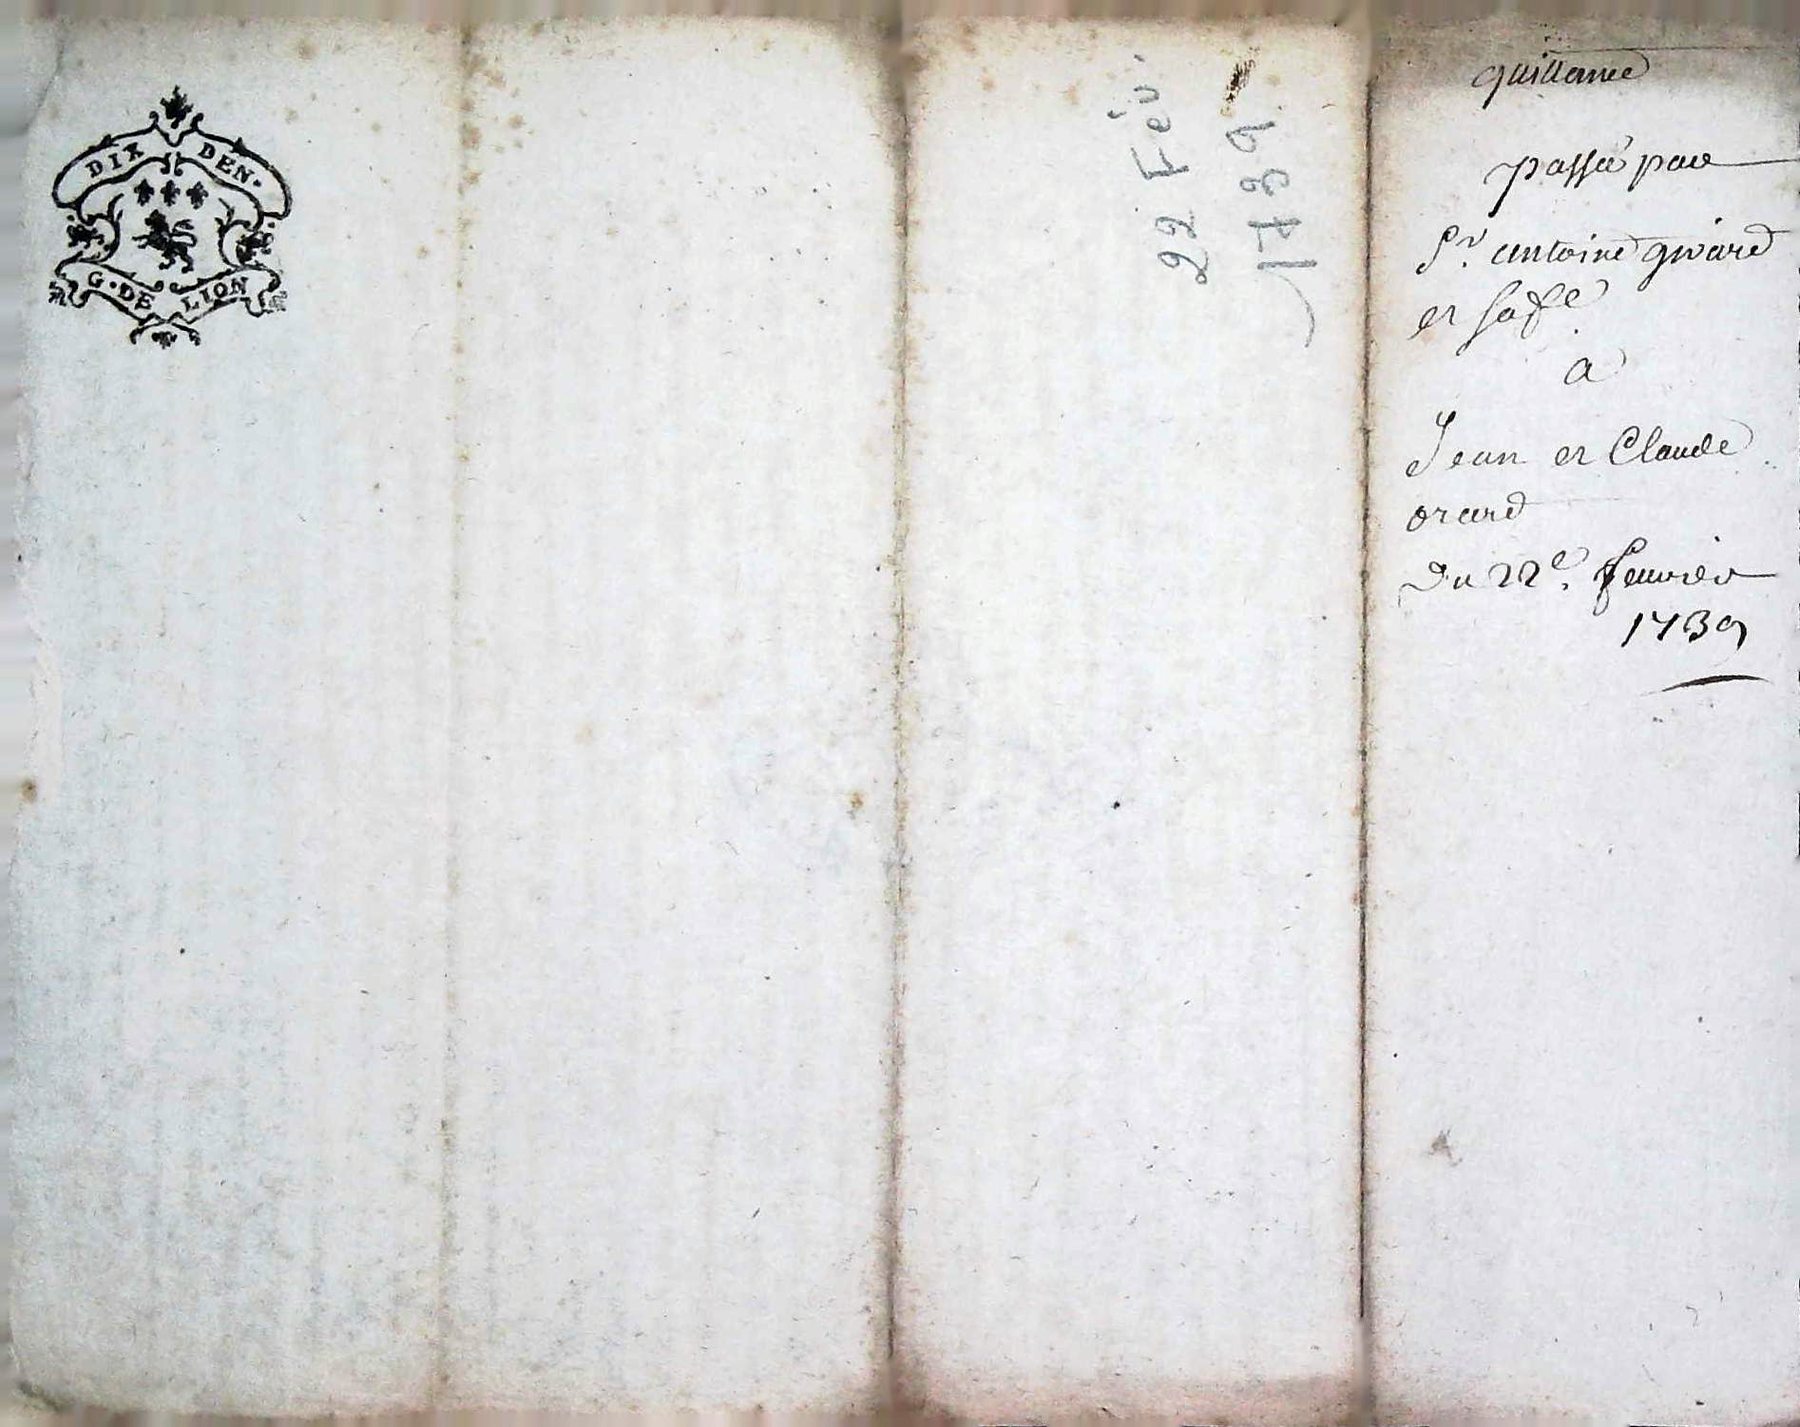 DIX DEN.
G. DE LION
22 Fév.
1739
quittance
passée par
Sr. antoine girard
et sa fe
a
Jean et Claude
orard
Du 22e. feuvrier
1739